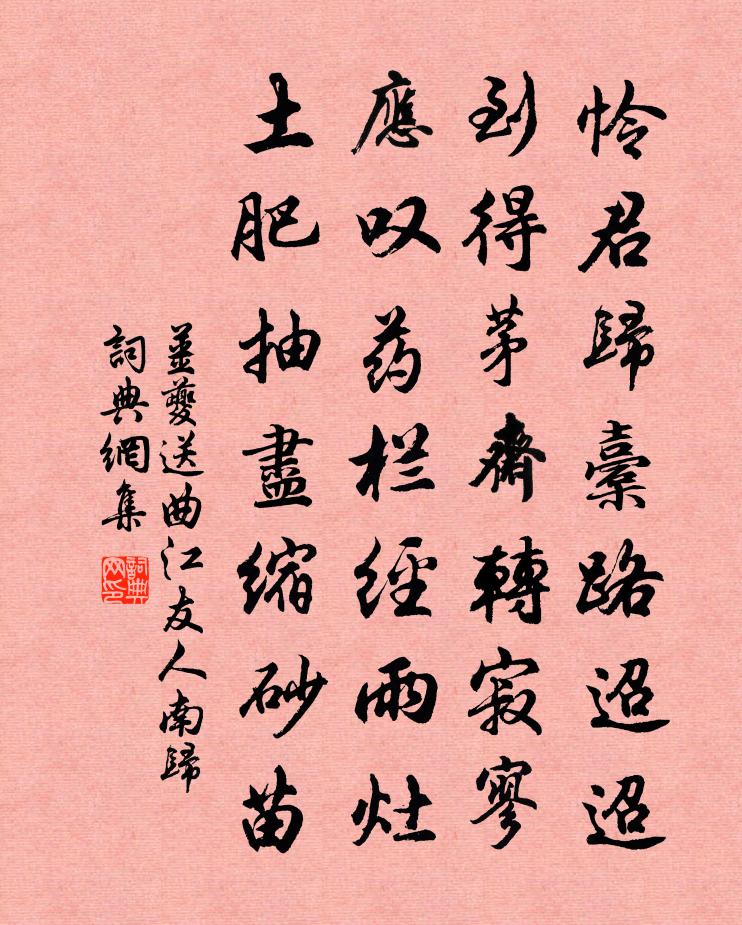 怜君歸橐路迢迢
到得茅齋轉寂寥
應叹药栏經雨灶
土肥抽盡缩砂苗
姜夔送曲江友人南歸
詞典網集
詞典网印